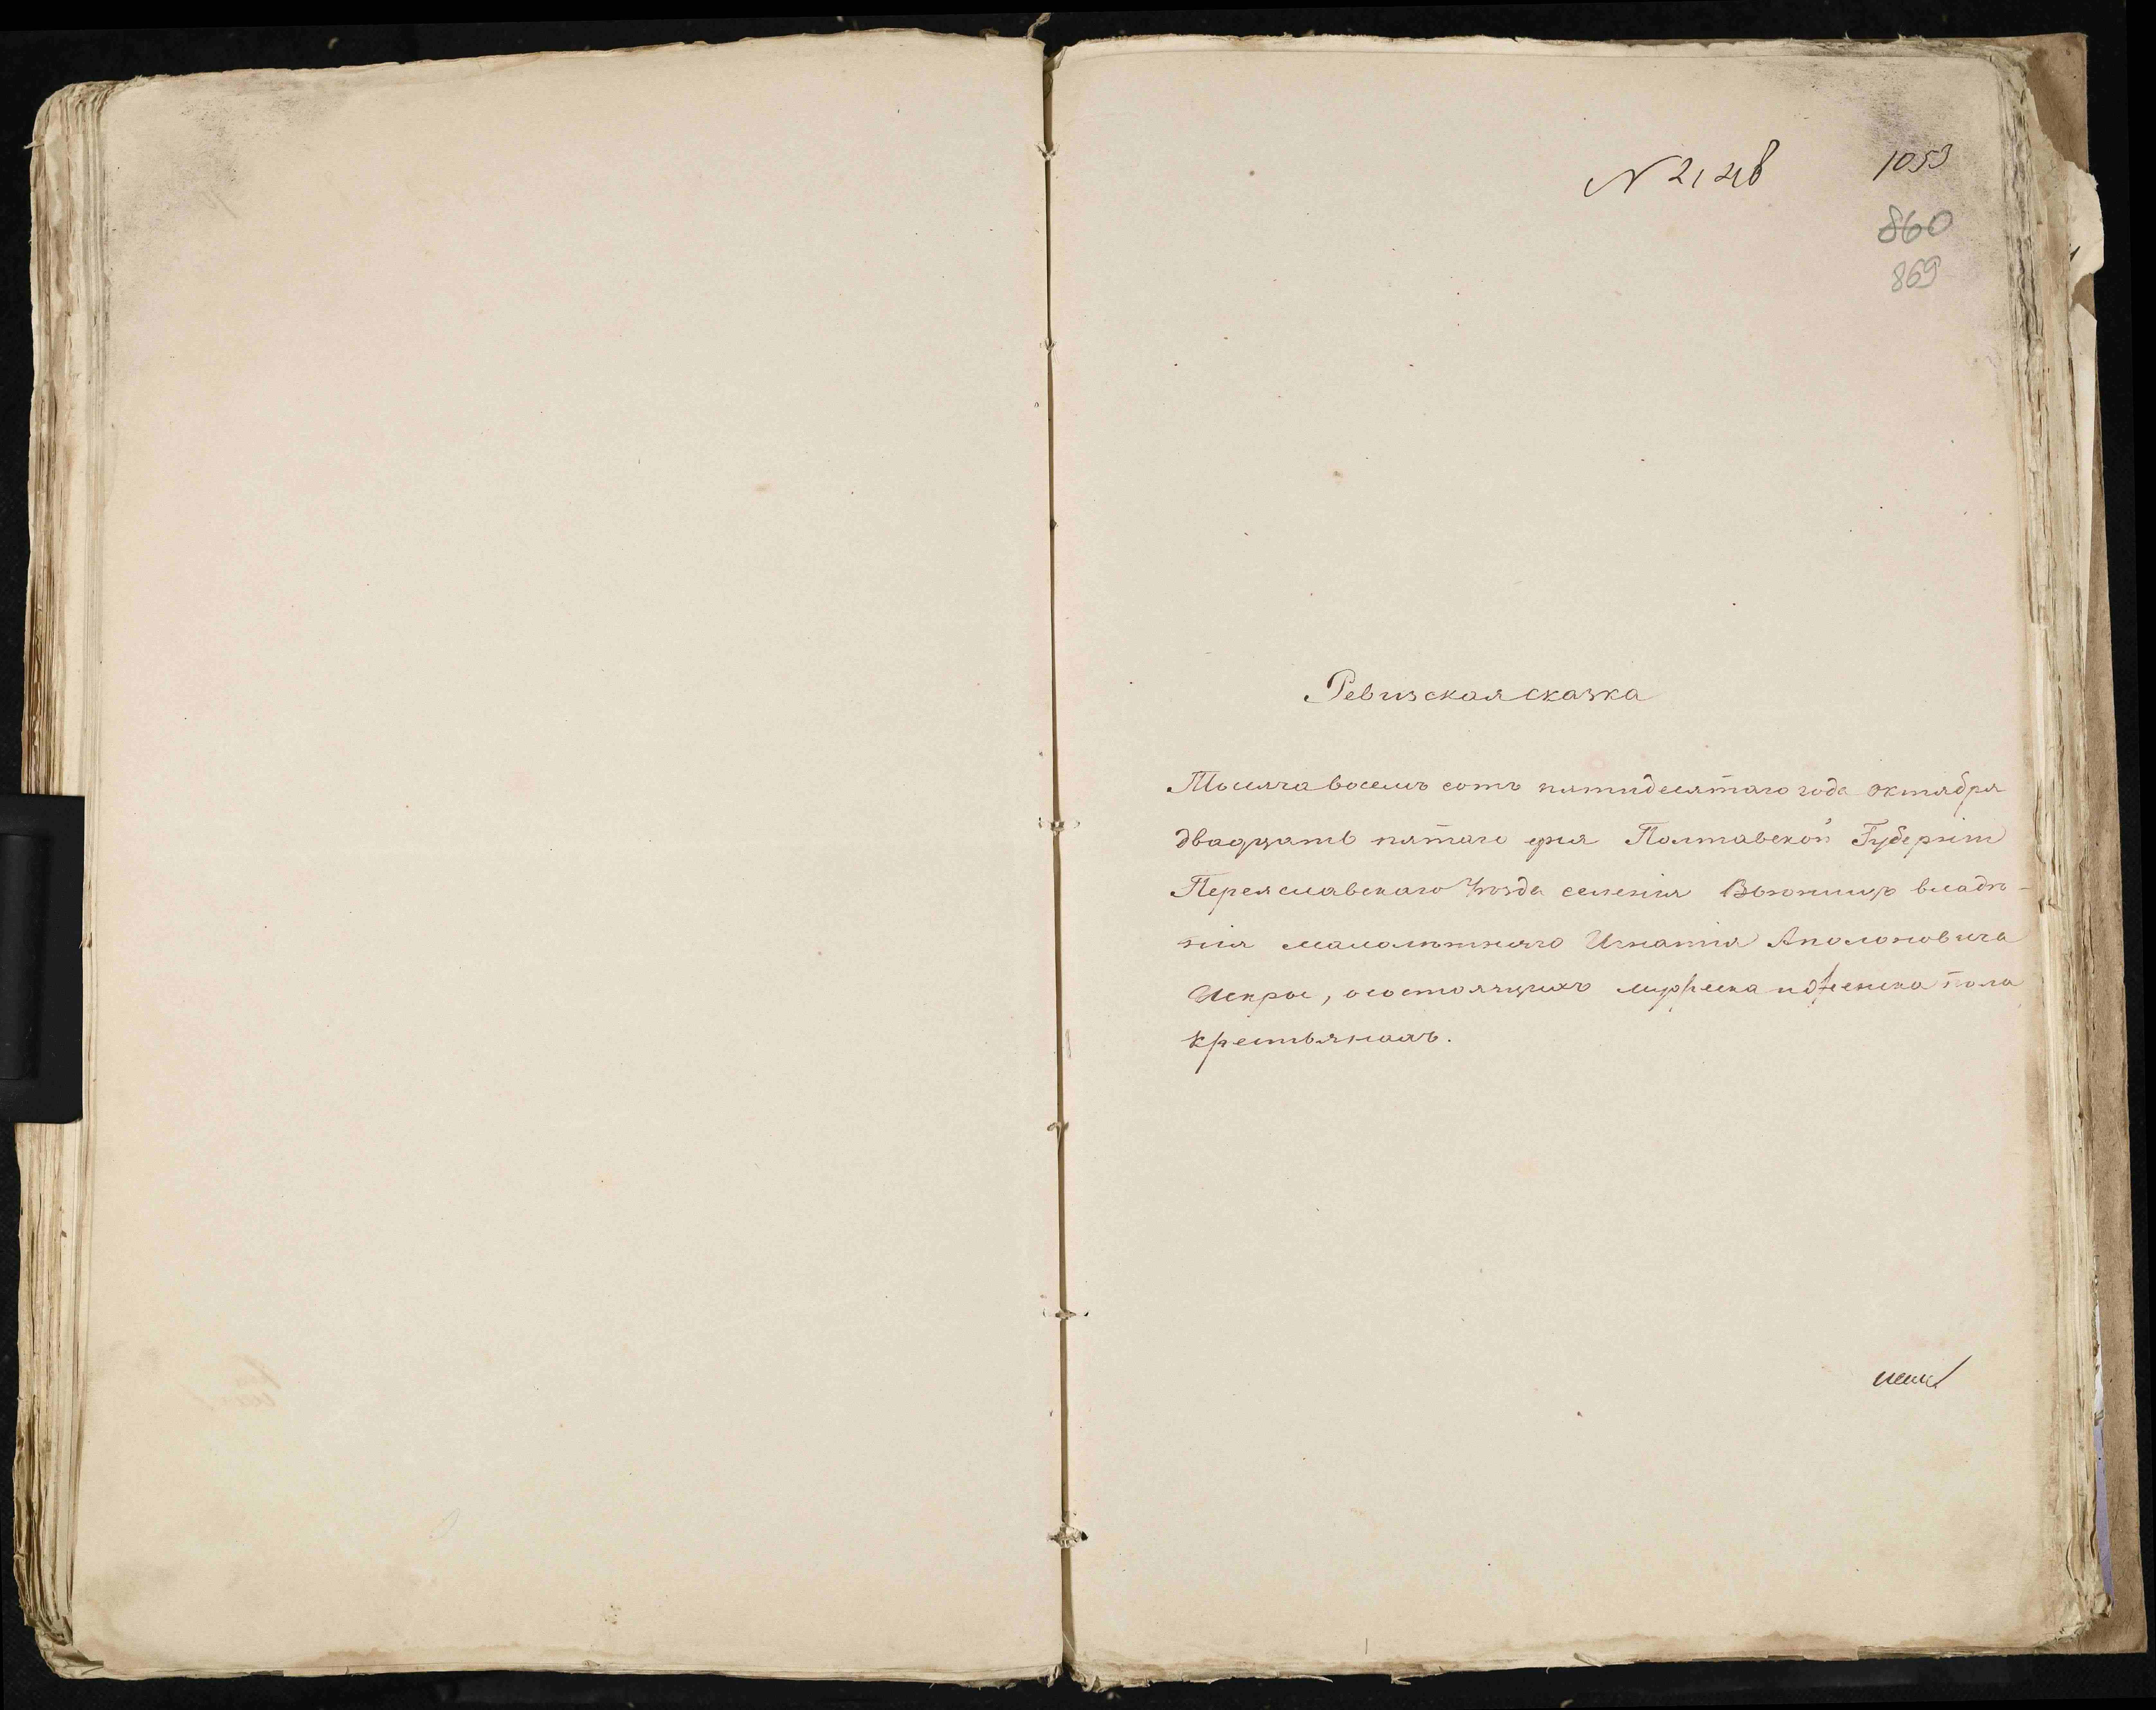 № 2,218
1053
860
869
Ревизская сказка
Тысяча восемь сотъ пятидесятаго года октября
двадцать пятаго дня Полтавской Губерніи
Переяславскаго Уѣзда селенія Вьюнищъ владѣ-
нія малолѣтняго Игнатія Аполоновича
Искры, о состоящихъ мужеска и женска пола
крестьянахъ.